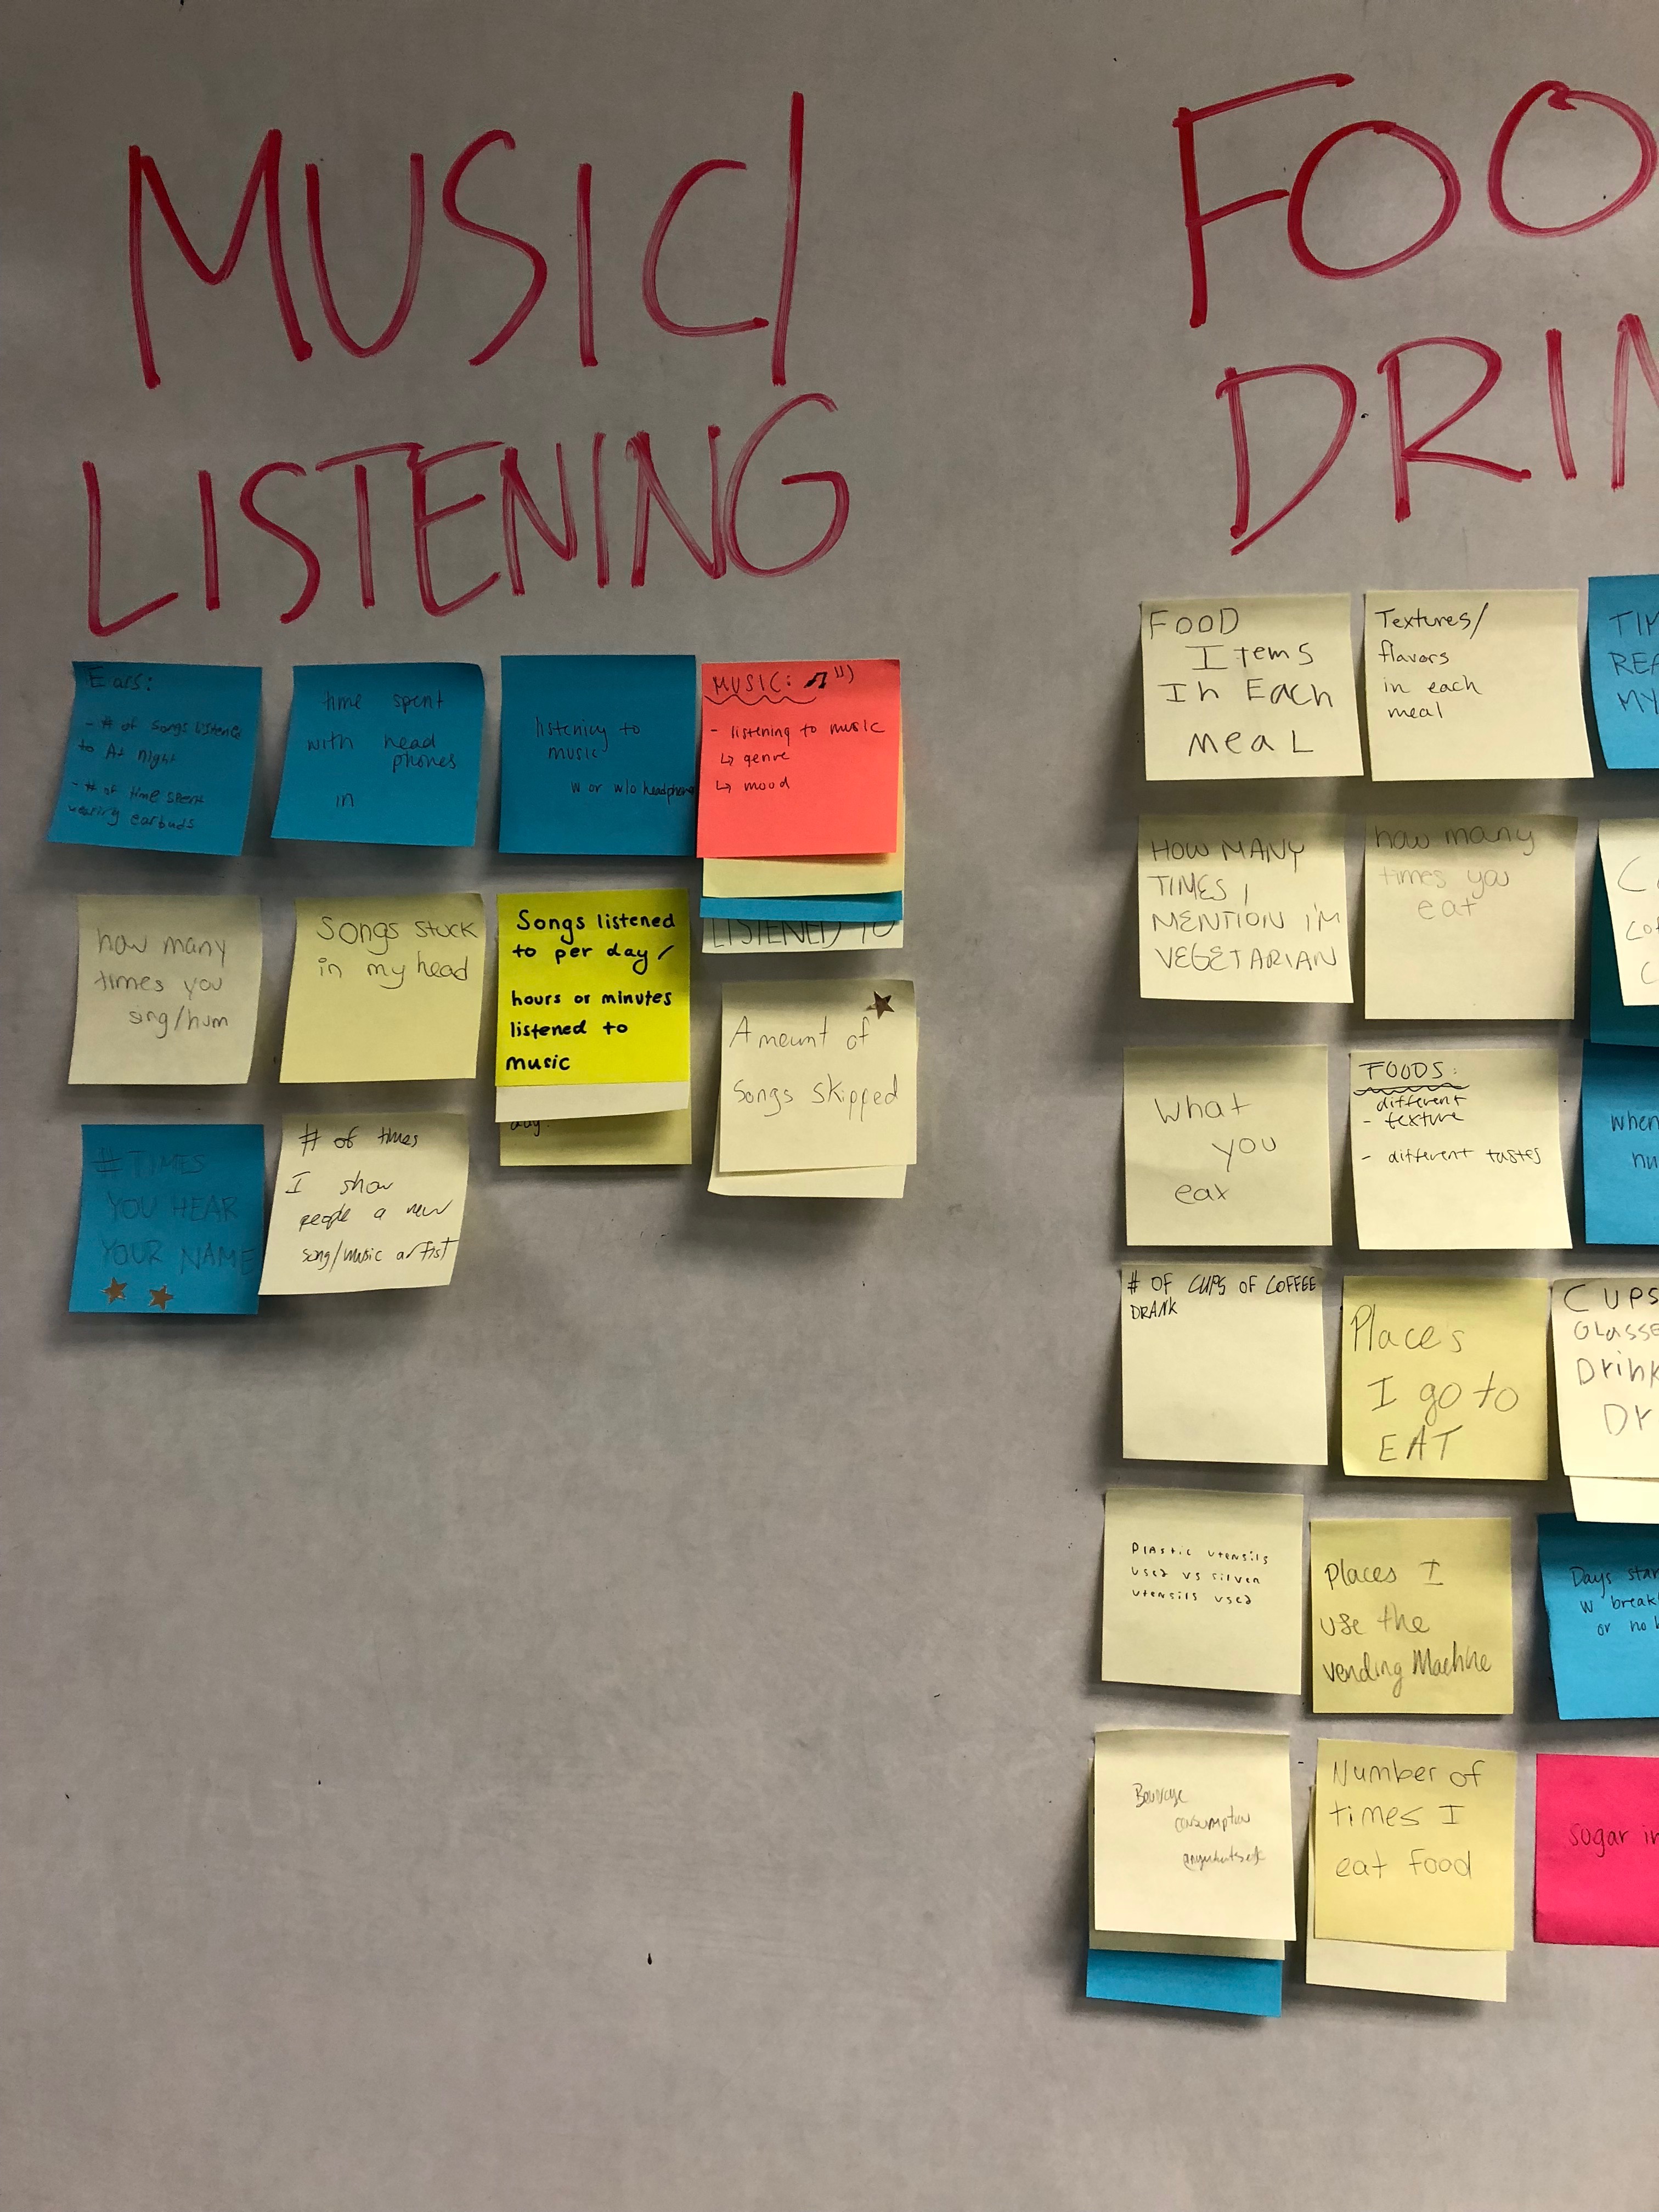 MUSIC/
LISTENING
Ears:
- # of songs listened
to At night
- # of time spent
wearing earbuds
time spent
with head
phones
in
listening to
music
w or w/o headphones
MUSIC:
- listening to music
↳ genre
↳ mood
LISTENED TO
how many
times you
sing/hum
Songs stuck
in my head
Songs listened
to per day/
hours or minutes
listened to
music
day.
Amount of
Songs skipped
# TIMES
YOU HEAR
YOUR NAME
# of times
I show
people a new
song/music artist
FOO
DRIN
FOOD
Items
In Each
meal
Textures/
flavors
in each
meal
TIM
REA
MY
HOW MANY
TIMES I
MENTION I'M
VEGETARIAN
how many
times you
eat
C
cof
C
What
you
eat
FOODS:
different
- texture
- different tastes
when
nu
# OF CUPS OF COFFEE
DRANK
Places
I go to
EAT
CUPS
Glasse
Drink
Dr
Plastic utensils
used vs silver
utensils used
Places I
use the
vending Machine
Days star
w break
or no
Beverage
consumption
Number of
times I
eat food
sugar in